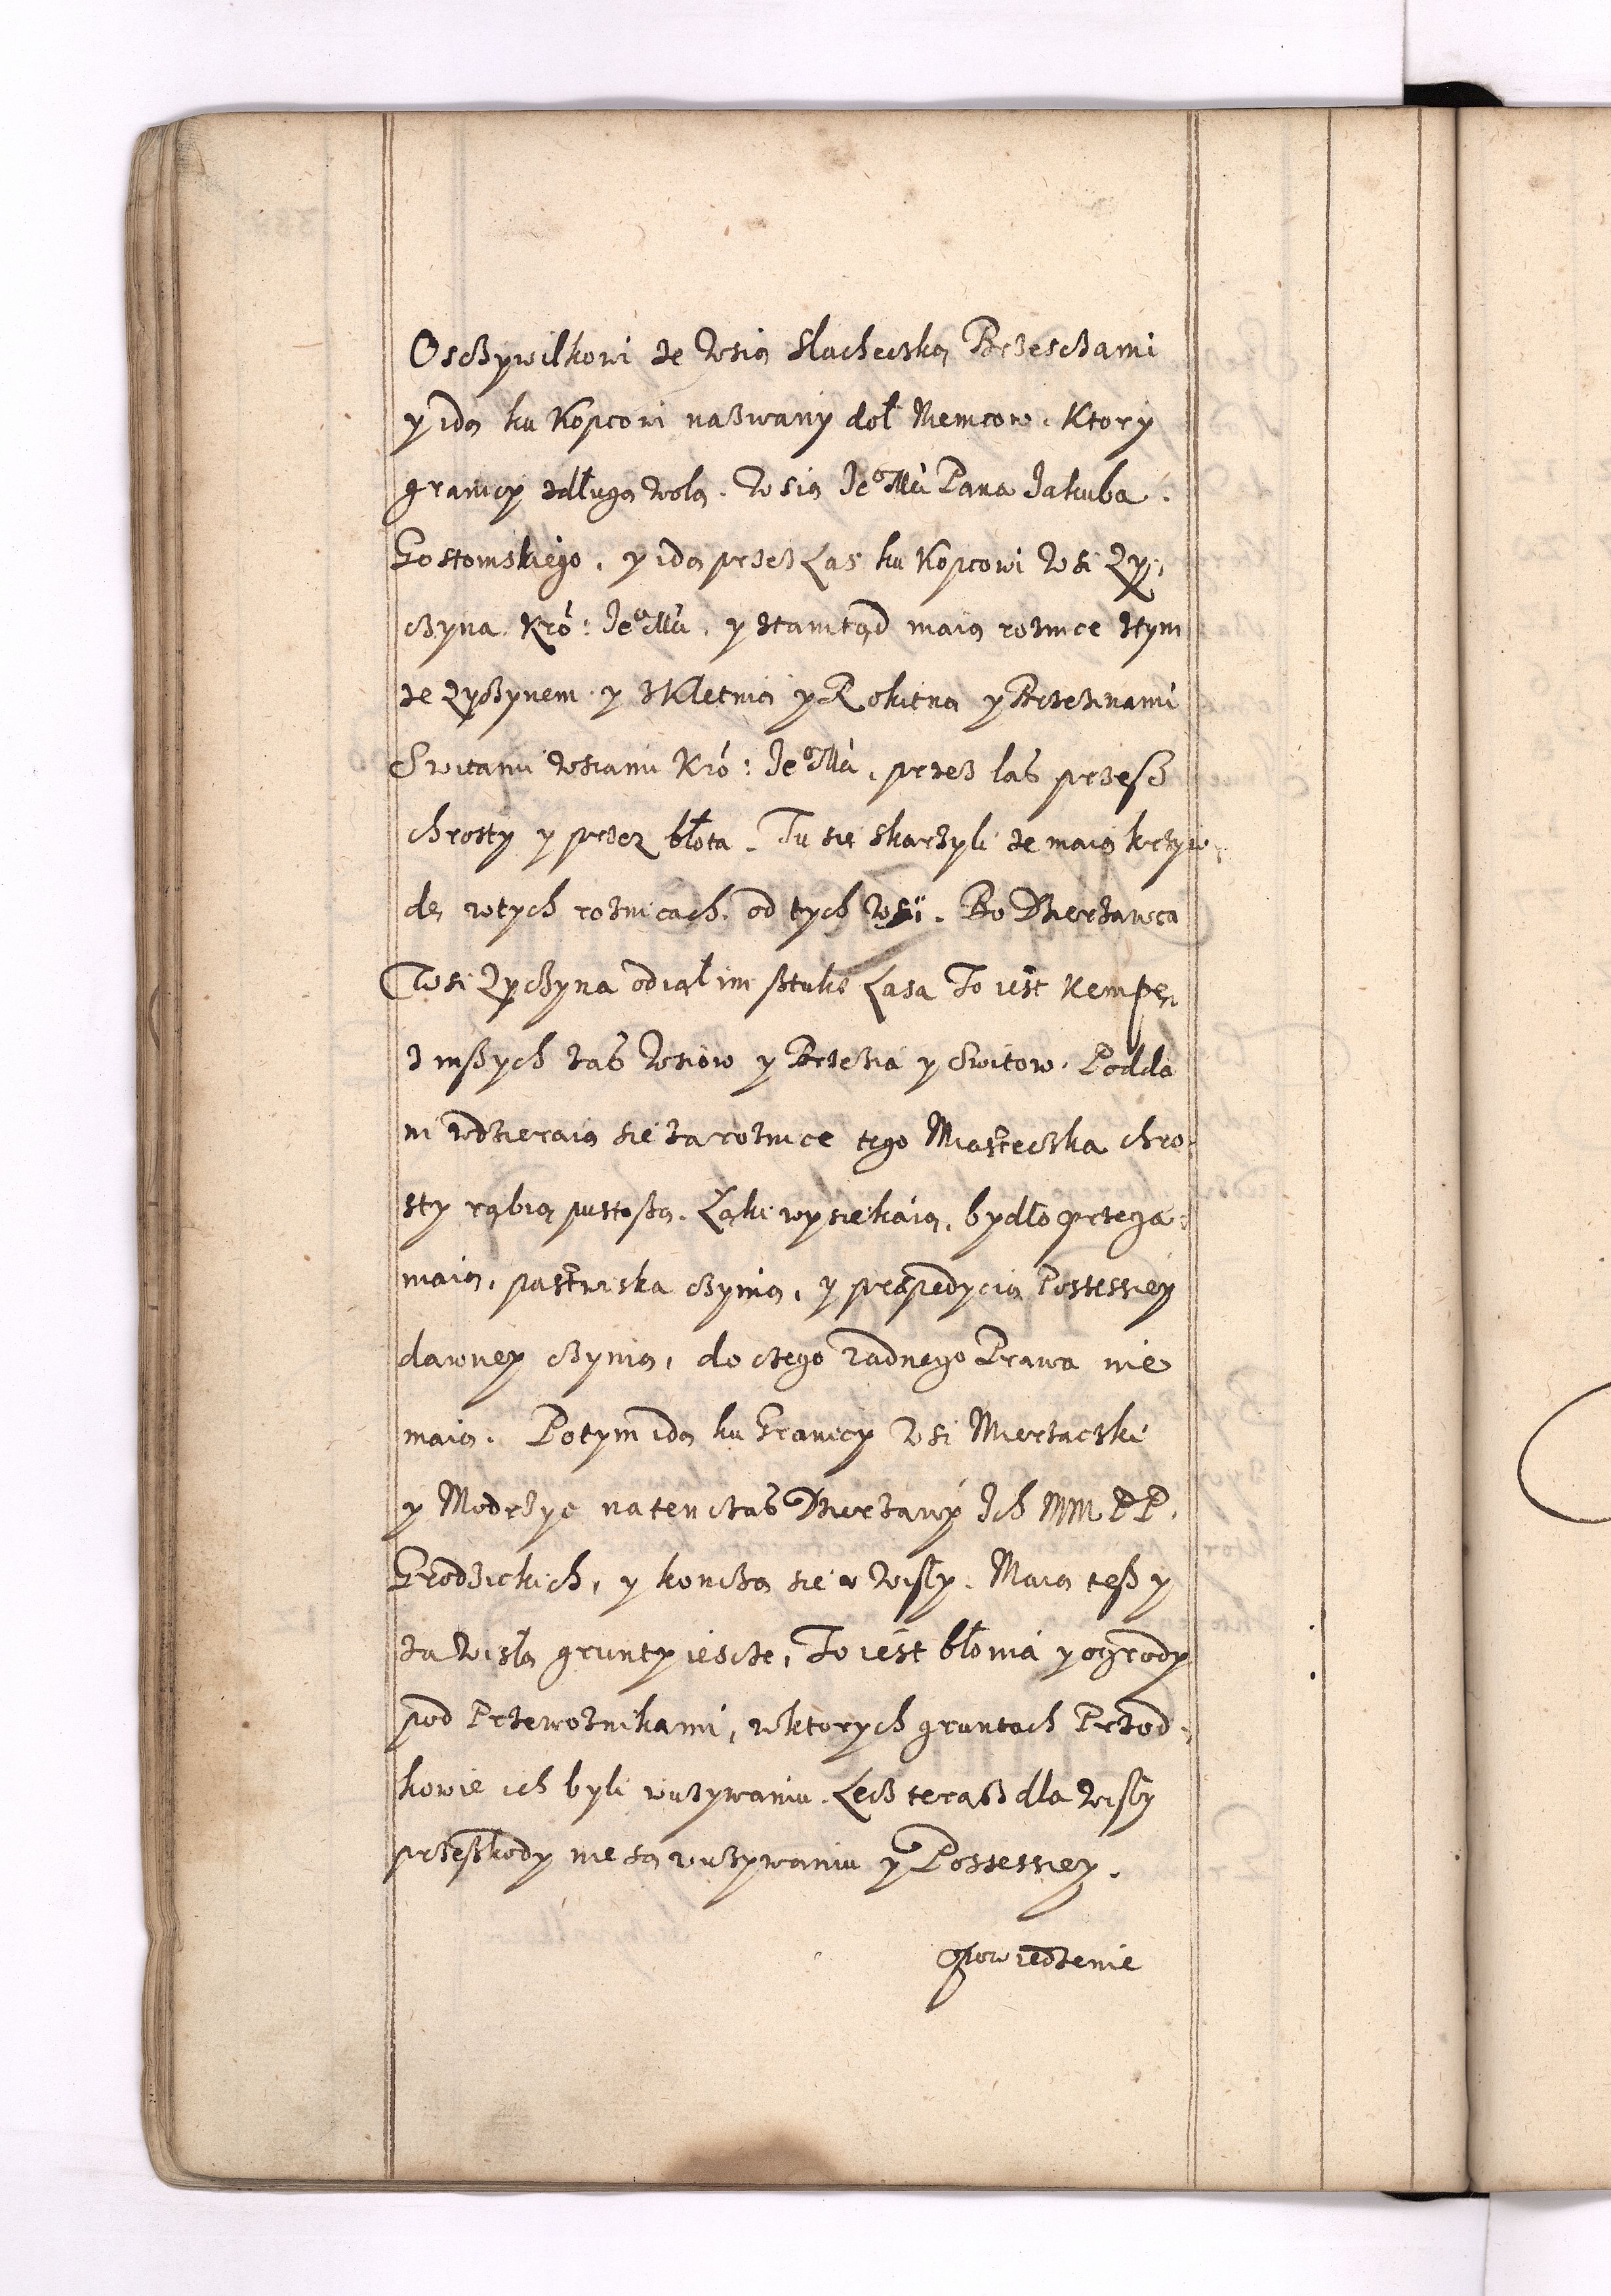 Osczywilkowi ze wsią Slachecką Brzesczami
y idą ku Kopcowi nazwany doł Niemcow. Ktory
graniczy zdługą wolą. Wsią Je⁰ Mci Pana Jakuba.
Gostomskiego. y idą przez Las ku Kopcowi wsi Ży,
czyna. Kro: Je⁰ Mci. y ztamtąd maią roznice stym
ze Życzynem y zKletnią y Rokitną y Brzezinami
Switami wsiami Kro: Je⁰ Mci. przez las przesz
chrosty y przez błota. Tu się skarzyli ze maią krzyw,
dę wtych roznicach. od tych wsi. Bo Dzierzawca
Wsi Życzyna odiął im sztukę Lasa To iest Kempę,
z inszych zaś wsiow y Brzezia y Switow. Podda
ni wdzieraią się za roznice tego Miasteczka chro,
sty rąbią pustoszą. Łąki wysiekaią. bydło przega,
niaią. pastwiska czynią. y prepedycią Possessiey
dawney czynią, do czego zadnego Prawa nie
maią. Potym idą ku Granicy Wsi Mierzaczki
y Modrzyc natenczas Dzierzawy Ich MM PP.
Grodzickich, y konczą się v wisły. Maią tesz y
za wisłą grunty iescze, To iest błonia y ogrody
pod Przewoznikami, wktorych gruntach Przod,
kowie ich byli wuzywaniu. Lecz terasz dla wisły
przeszkody nie są wuzywaniu y Possessiey.
Opowiedzenie